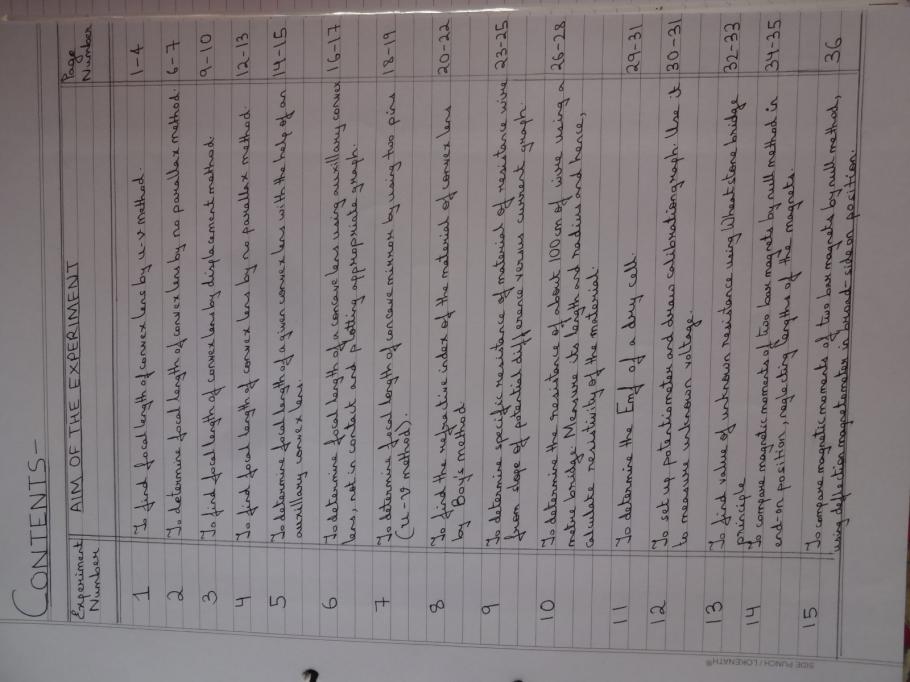 CONTENTS-
Experiment Number AIM OF THE EXPERIMENT Page Number
1 To find focal length of convex lens by u-v method. 1-4
2 To determine focal length of convex lens by no parallax method. 6-7
3 To find focal length of convex lens by displacement method. 9-10
4 To find focal length of convex lens by no parallax method. 12-13
5 To determine focal length of a given convex lens with the help of an 14-15
auxillary convex lens.
6 To determine focal length of a concave lens using auxillary convex 16-17
lens, not in contact and plotting appropriate graph.
7 To determine focal length of concave mirror by using two pins 18-19
(u-v method).
8 To find the refractive index of the material of convex lens 20-22
by Boys method.
9 To determine specific resistance of material of resistance wire 23-25
from slope of potential difference versus current graph.
10 To determine the resistance of about 100cm of wire using a 26-28
metre bridge. Measure its length and radius and hence,
calculate resistivity of the material.
11 To determine the Emf of a dry cell. 29-31
12 To set up potentiometer and draw calibration graph. Use it 30-31
to measure unknown voltage.
13 To find value of unknown resistance using Wheatstone bridge 32-33
principle
14 To compare magnetic moments of two bar magnets by null method in 34-35
end-on position, neglecting lengths of the magnets.
15 To compare magnetic moments of two bar magnets by null method, 36
using deflection magnetometer in broad-side on position.
SIDE PUNCH / LORENATH®